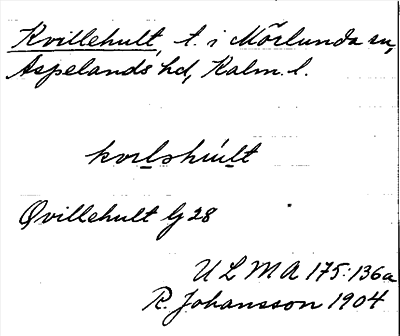 Kvillehult, t. i Mörlunda sn,
Aspelands hd, Kalm. l.
kvilshúlt
Qvillehult Gj 28
ULMA 175:136a
R. Johansson 1904